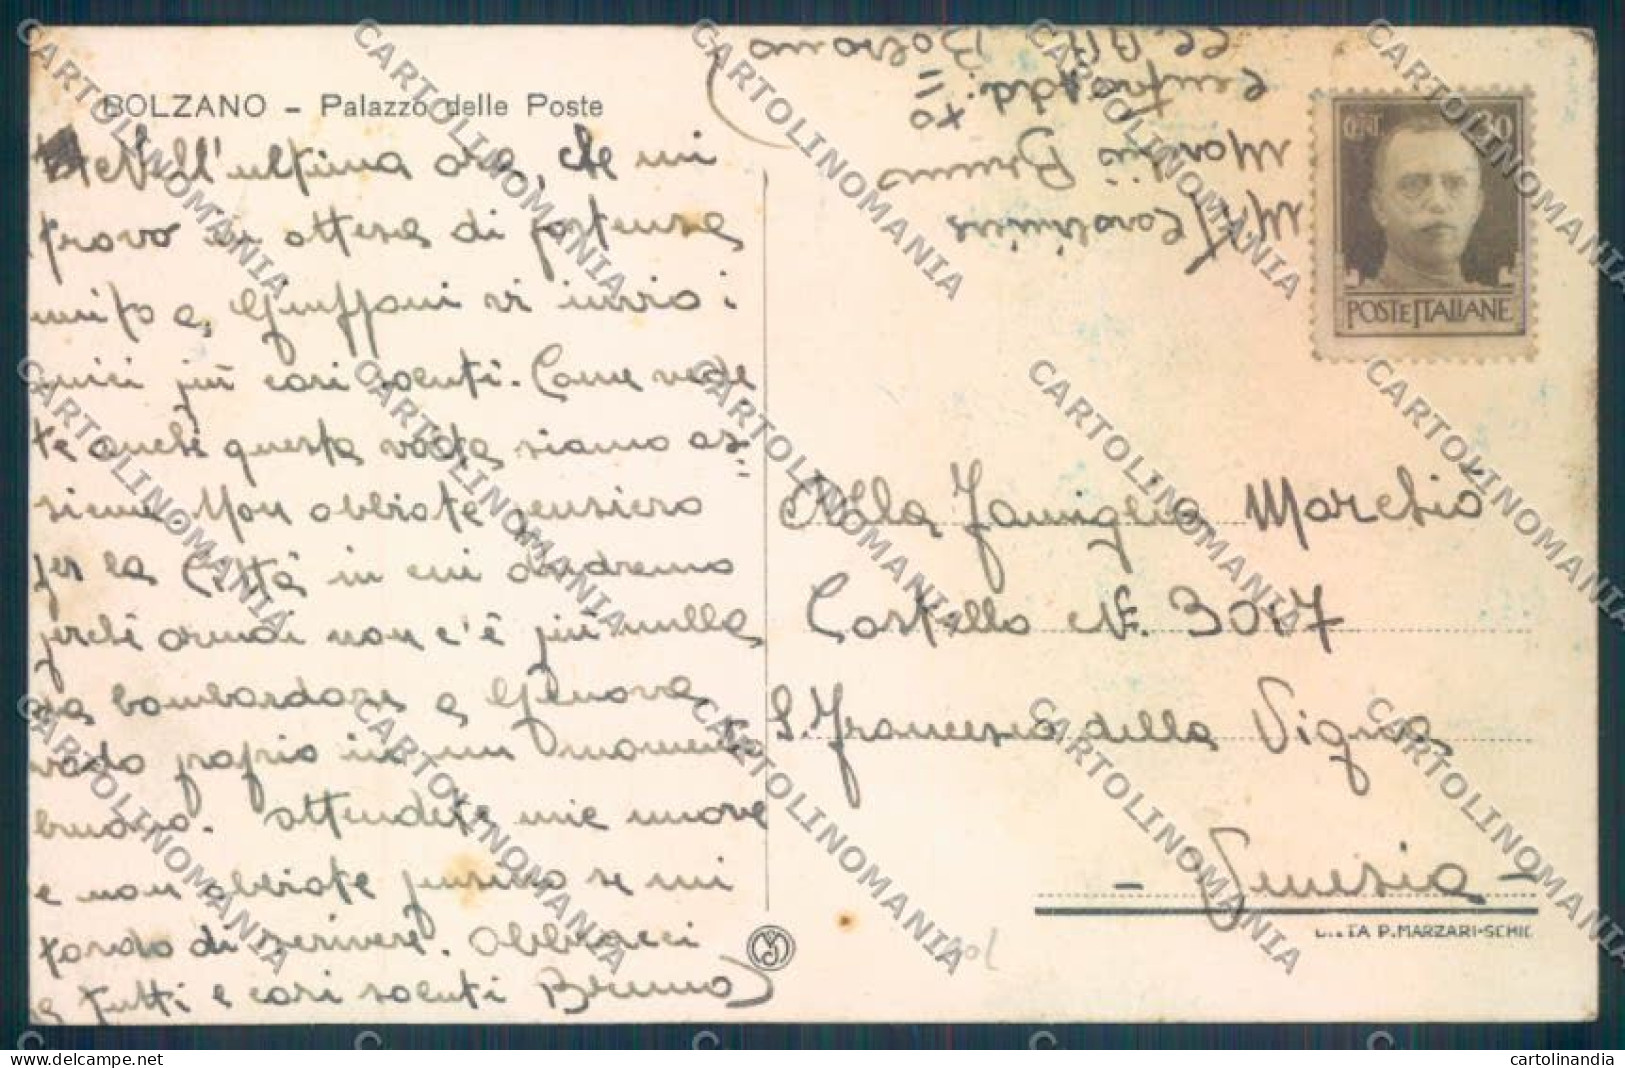 BOLZANO - Palazzo delle Poste
Nell'ultima ora, che mi
trovo in attesa di partenza
unito a Giuffoni vi invio i
miei più cari saluti. Come vede
te anche questa volta siamo as=
sieme. Non abbiate pensiero
per la Città in cui andremo
perché ormai non c'è più nulla
da bombardare a Genova,
vado proprio in un momento
buono. Attendete mie nuove
e non abbiate pensiero se mi
tardo di scrivere. Abbracci
a tutti e cari saluti Bruno
Bolzano
Centro Add.
Marchiò Bruno
POSTE ITALIANE
30
CENT.
Alla Famiglia Marchiò
Castello N. 3017
S. Francesco della Vigna
- Venezia -
DITTA P. MARZARI-SCHIO
www.delcampe.net
cartolinandia
CARTOLINOMANIA